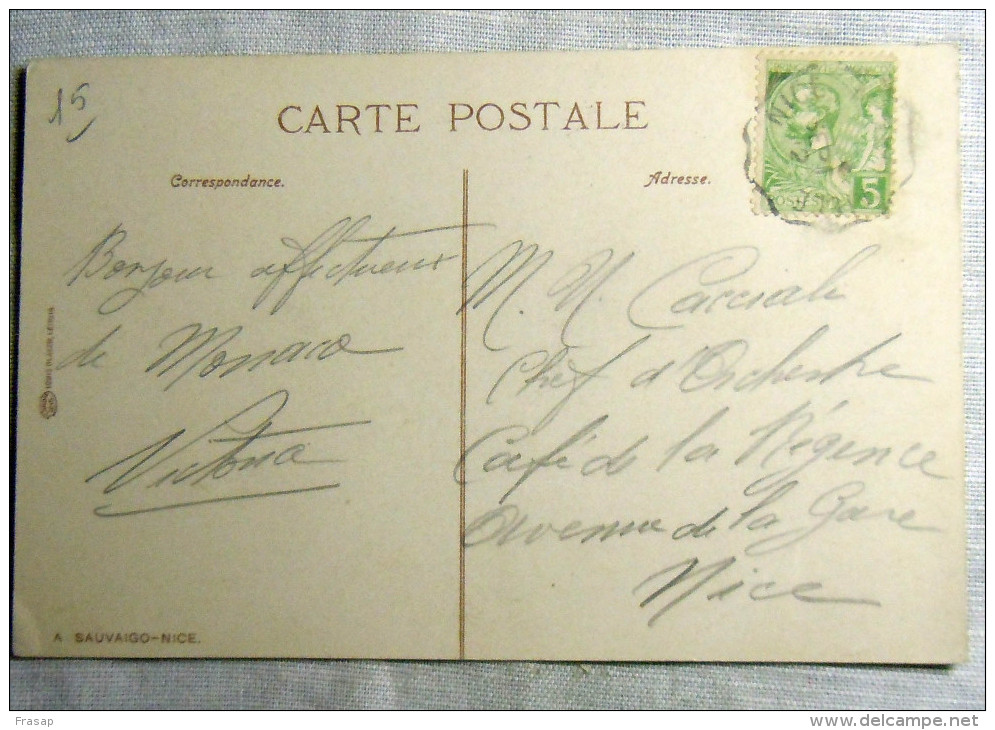 15
CARTE POSTALE
Correspondance.
Adresse.
NICE
POSTES
5
Bonjour affectueux
de Monaco
Victoria
M. N. Cacciali
Chef d'Orchestre
Café de la Régence
Avenue de la Gare
Nice
A SAUVAIGO-NICE.
Frasap
www.delcampe.net